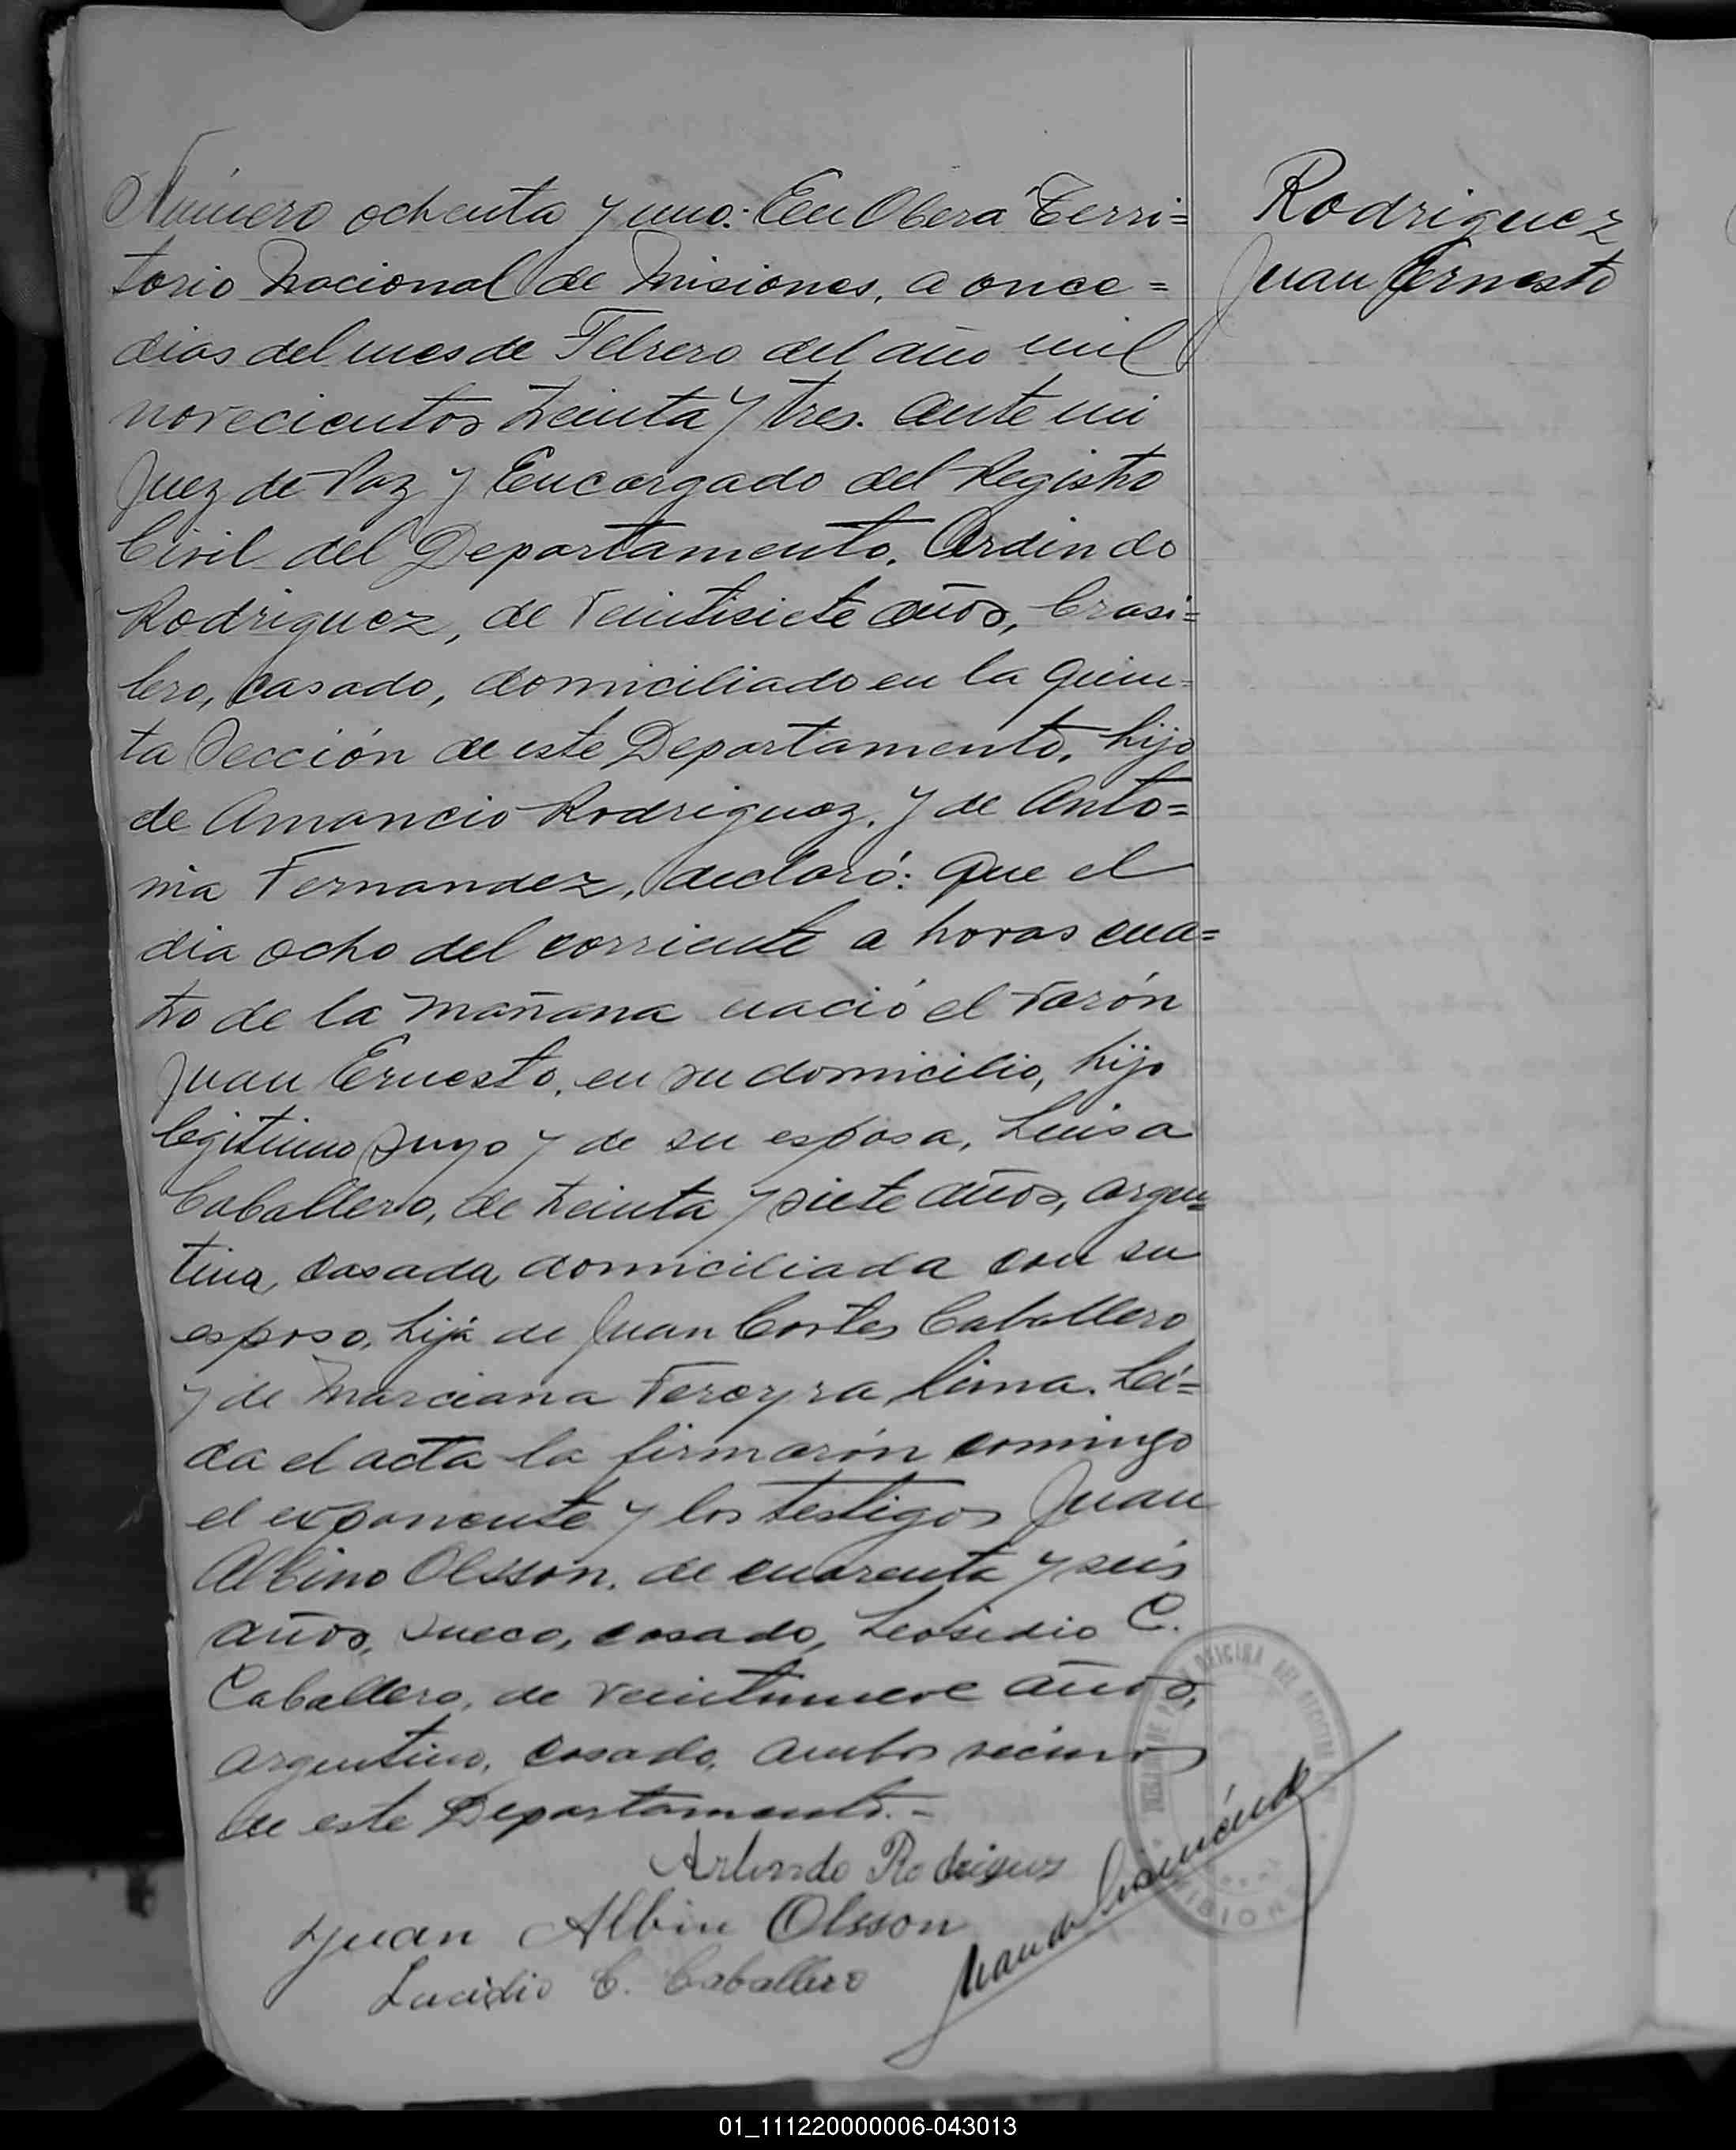 Rodriguez
Juan Ernesto
Número ochenta y uno: En Obera Terri=
torio Nacional de Misiones, a once=
dias del mes de Febrero del año mil
novecientos treinta y tres. Ante mi
Juez de Paz y Encargado del Registro
Civil del Departamento. Ordindo
Rodriguez, de veintisiete años, brasi=
lero, casado, domiciliado en la quin=
ta Sección de este Departamento, hijo
de Amancio Rodriguez. y de Anto=
nia Fernandez, declaró: Que el
dia ocho del corriente a horas cua=
tro de la mañana nació el varón
Juan Ernesto, en su domicilio, hijo
legitimo suyo y de su esposa, Luisa
Caballero, de treinta y siete años, argen=
tina, casada, domiciliada con su
esposo, hija de Juan Cortes Caballero
y de Marciana Fereyra Lima. Leí=
da el acta la firmarón conmigo
el exponente y los testigos Juan
Albino Olsson, de cuarenta y seis
años, sueco, casado, C.
Caballero, de veintinueve años,
argentino, casado, ambos vecinos
de este Departamento.-
Arlindo Rodrigues
Juan Albin Olsson
Lucidio C. Caballero
OFICINA DEL REGISTRO
MISIONES
01_111220000006-043013